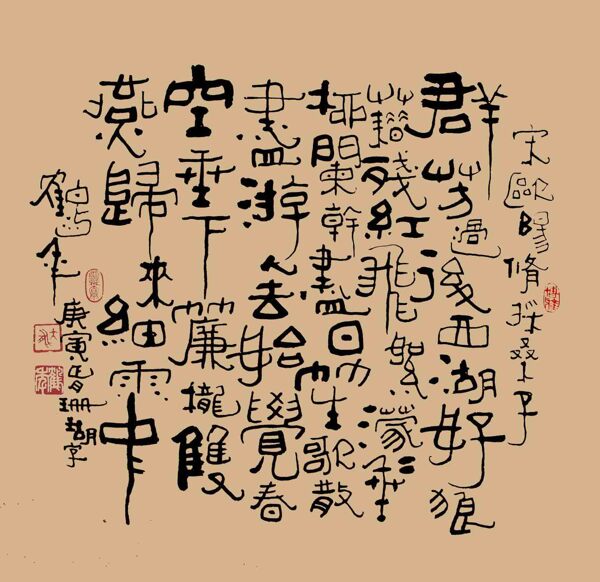 宋歐陽脩採桑子
群芳過後西湖好狼
藉殘紅飛絮濛垂
柳闌幹盡日風笙歌散
盡游人去始覺春
空垂下簾櫳雙
燕歸來細雨中
鶴年
庚寅珊瑚字